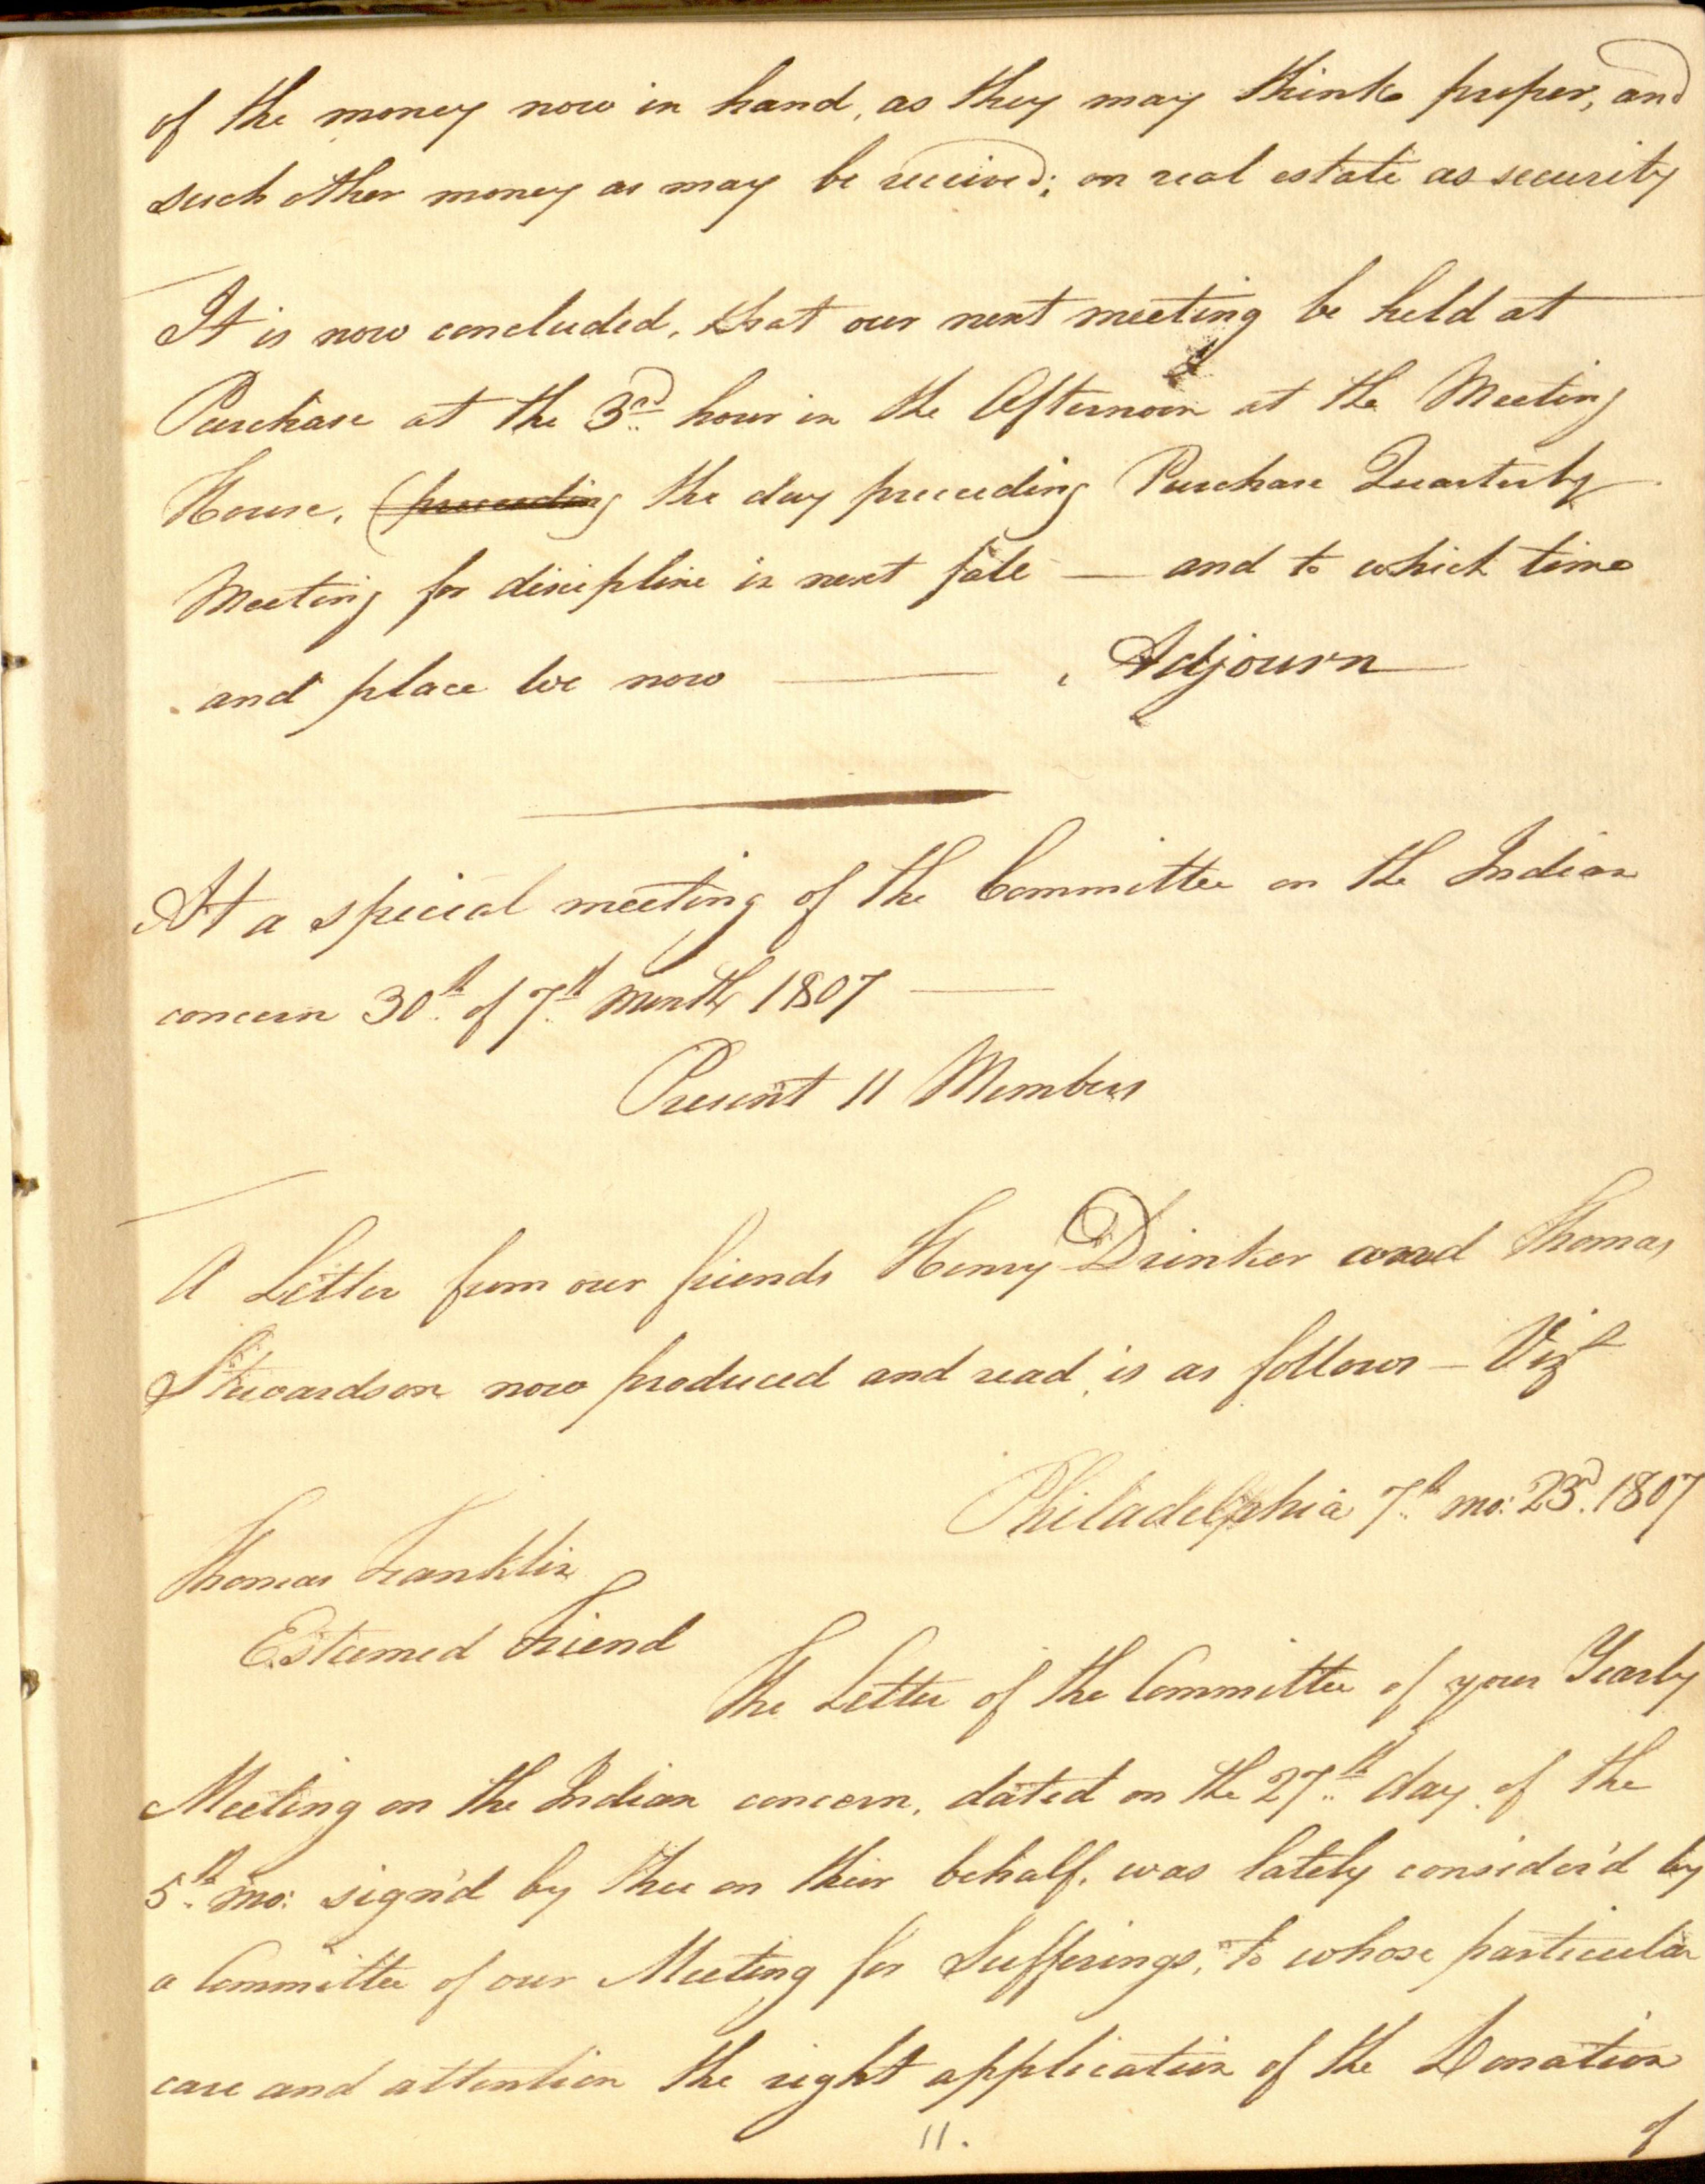 of the money now in hand, as they may think proper, and
such other money as may be received; on real estate as security
It is now concluded, that our next meeting be held at
Purchase at the 3rd hour in the Afternoon at the Meeting
House, (preceeding the day preceeding Purchase Quarterly
Meeting for discipline in next fall — and to which time
and place we now — Adjourn
At a special meeting of the Committee on the Indian
concern 30th of 7th month 1807 —
Present 11 Members
A Letter from our friends Henry Drinker and Thomas
Stewardson now produced and read, is as follows — Vizt
Philadelphia 7th mo: 23rd. 1807
Thomas Franklin
Esteemed Friend
The Letter of the Committee of your Yearly
Meeting on the Indian concern, dated on the 27th day of the
5th mo: sign'd by thee on their behalf, was lately consider'd by
a Committee of our Meeting for Sufferings, to whose particular
care and attention the right application of the Donation
11.
of